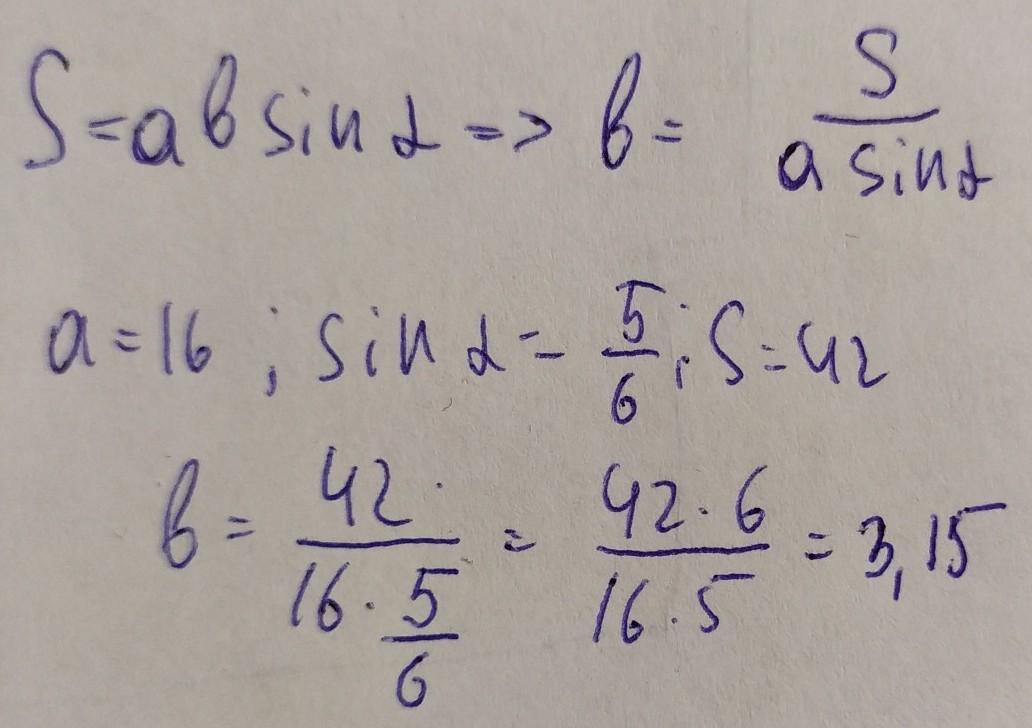 S = a b sin α => b = S / (a sin α)
a = 16 ; sin α = 5/6 ; S = 42
b = 42 / (16 · 5/6) = (42 · 6) / (16 · 5) = 3,15